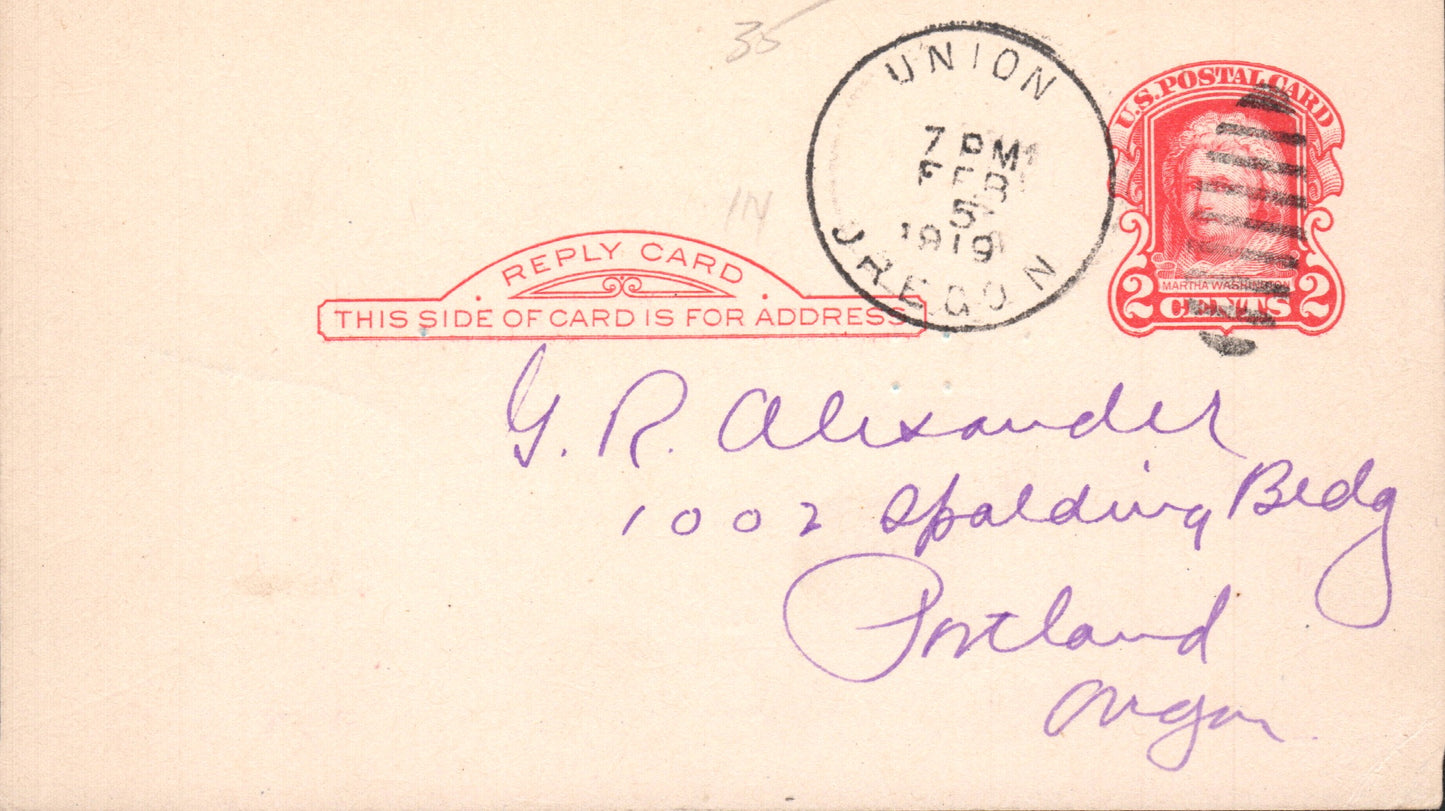 35
UNION
7 PM
FEB
5
1919
OREGON
U.S. POSTAL CARD
MARTHA WASHINGTON
2 CENTS 2
14
REPLY CARD
THIS SIDE OF CARD IS FOR ADDRESS
G. R. Alexander
1002 Spalding Bldg
Portland
Oregon